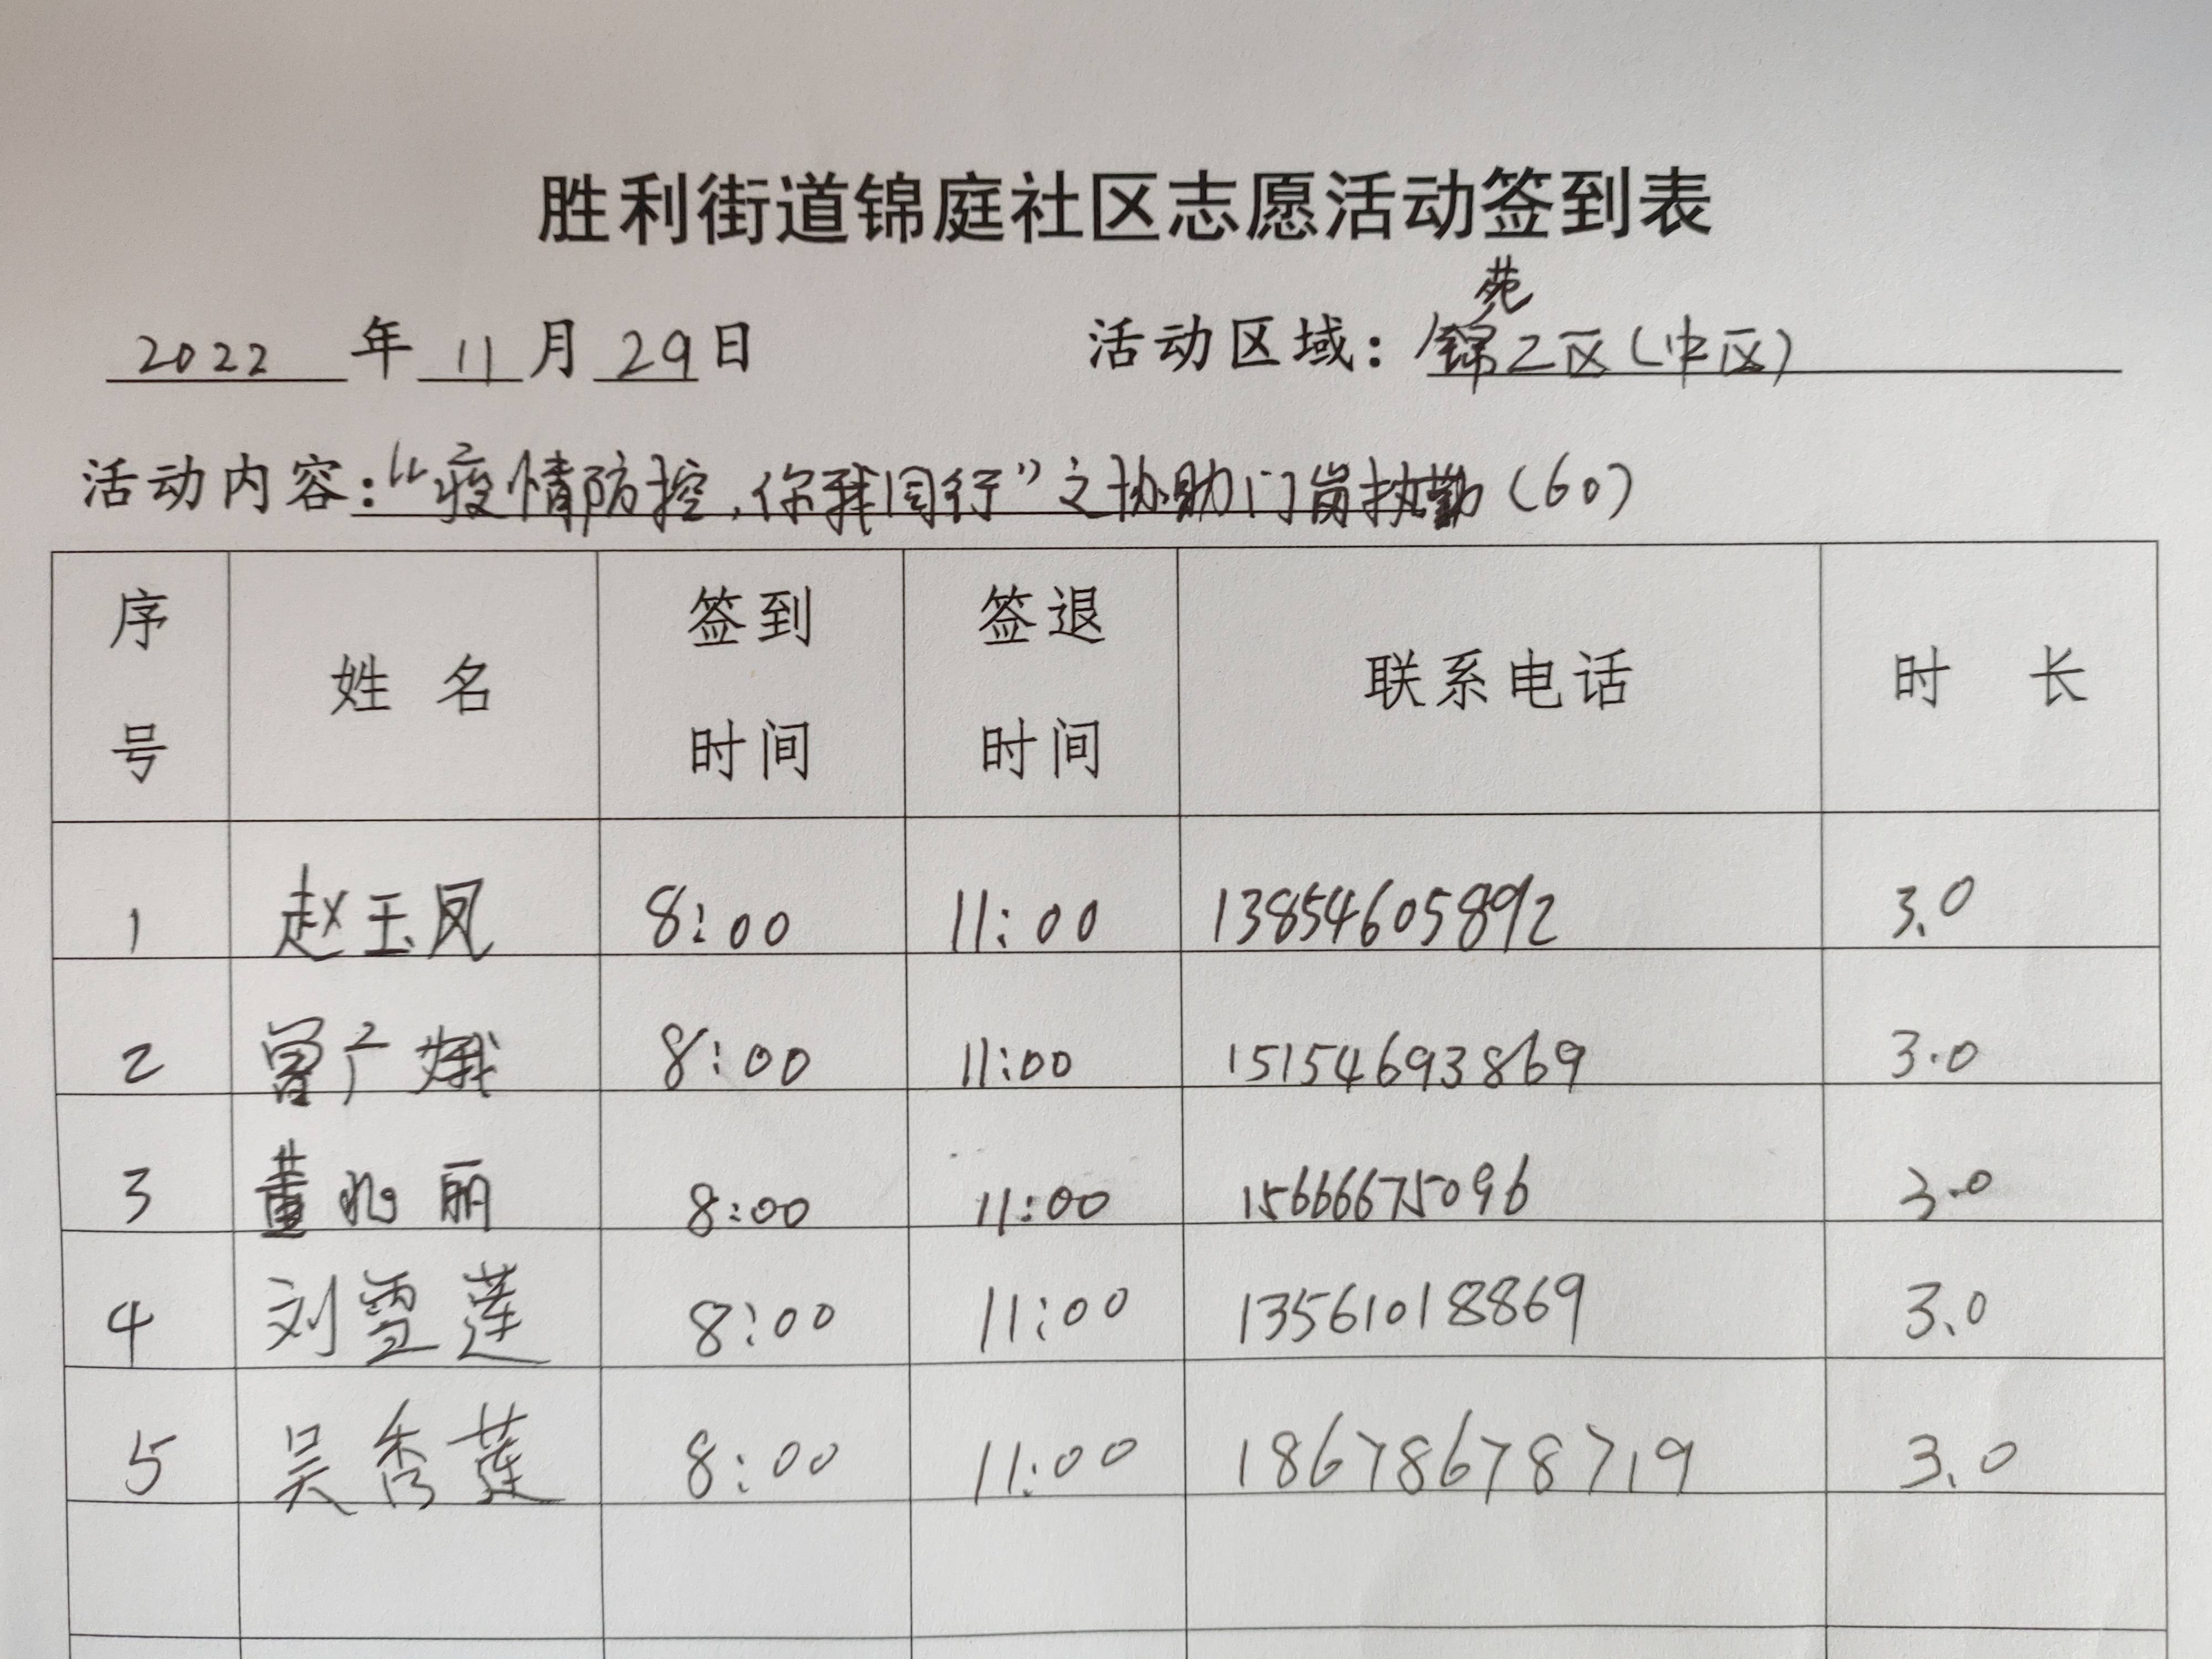 胜利街道锦庭社区志愿活动签到表
2022 年 11 月 29 日 活动区域：锦苑二区（中区）
活动内容：“疫情防控，你我同行”之协助门岗执勤（60）
序号 姓名 签到时间 签退时间 联系电话 时 长
1 赵玉凤 8:00 11:00 13854605892 3.0
2 曾广娥 8:00 11:00 15154693869 3.0
3 董兆丽 8:00 11:00 15666675096 3.0
4 刘雪莲 8:00 11:00 13561018869 3.0
5 吴秀莲 8:00 11:00 18678678719 3.0